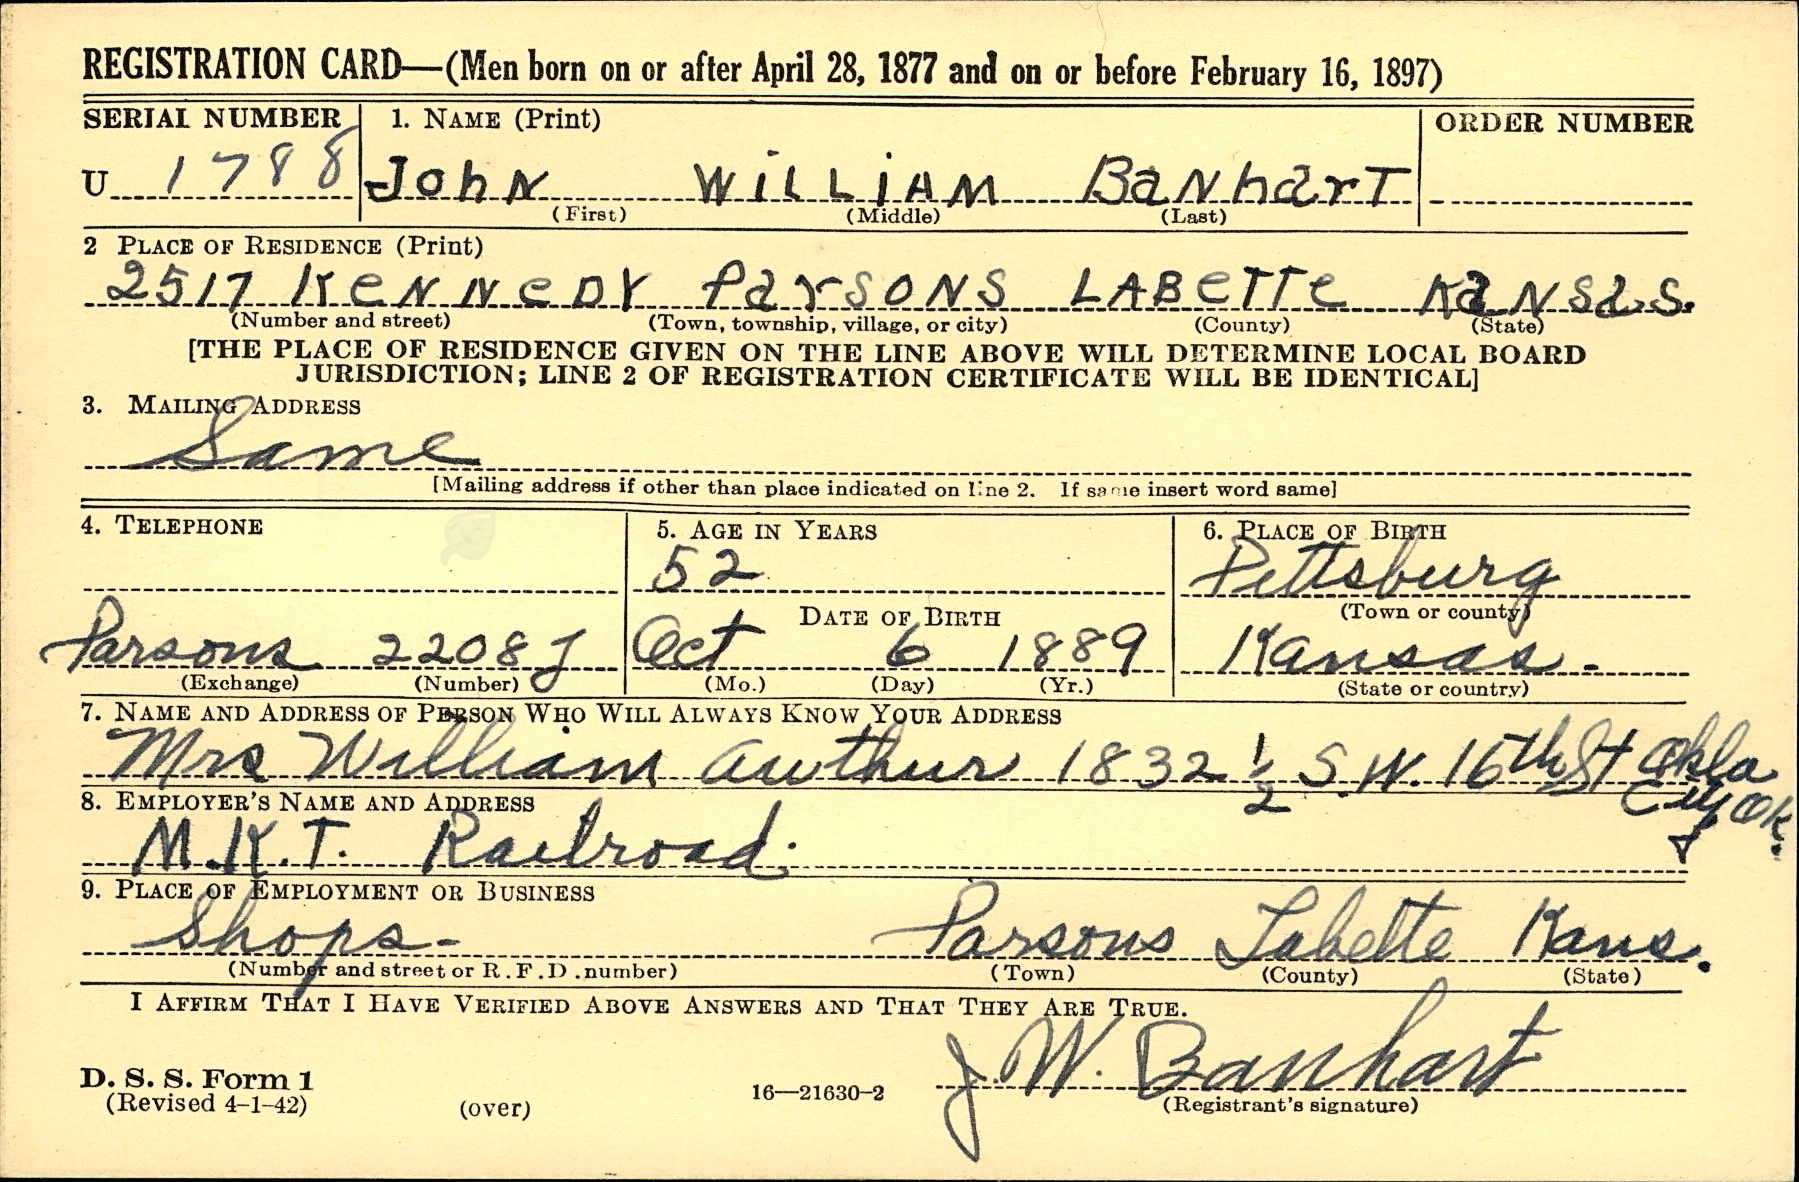 REGISTRATION CARD—(Men born on or after April 28, 1877 and on or before February 16, 1897)
SERIAL NUMBER 1. NAME (Print) ORDER NUMBER
U 1788 John William Banhart
(First) (Middle) (Last)
2 PLACE OF RESIDENCE (Print)
2517 Kennedy Parsons Labette Kansas.
(Number and street) (Town, township, village, or city) (County) (State)
[THE PLACE OF RESIDENCE GIVEN ON THE LINE ABOVE WILL DETERMINE LOCAL BOARD
JURISDICTION; LINE 2 OF REGISTRATION CERTIFICATE WILL BE IDENTICAL]
3. MAILING ADDRESS
Same
[Mailing address if other than place indicated on line 2. If same insert word same]
4. TELEPHONE 5. AGE IN YEARS 6. PLACE OF BIRTH
52 Pittsburg
DATE OF BIRTH (Town or county)
Parsons 2208 J Oct 6 1889 Kansas.
(Exchange) (Number) (Mo.) (Day) (Yr.) (State or country)
7. NAME AND ADDRESS OF PERSON WHO WILL ALWAYS KNOW YOUR ADDRESS
Mrs William Authur 1832 1/2 S.W. 15th St Okla
City Ok.
8. EMPLOYER'S NAME AND ADDRESS
M.K.T. Railroad.
9. PLACE OF EMPLOYMENT OR BUSINESS
Shops - Parsons Labette Kans.
(Number and street or R.F.D. number) (Town) (County) (State)
I AFFIRM THAT I HAVE VERIFIED ABOVE ANSWERS AND THAT THEY ARE TRUE.
J. W. Banhart
D. S. S. Form 1
(Revised 4-1-42) (over) 16—21630-2 (Registrant's signature)